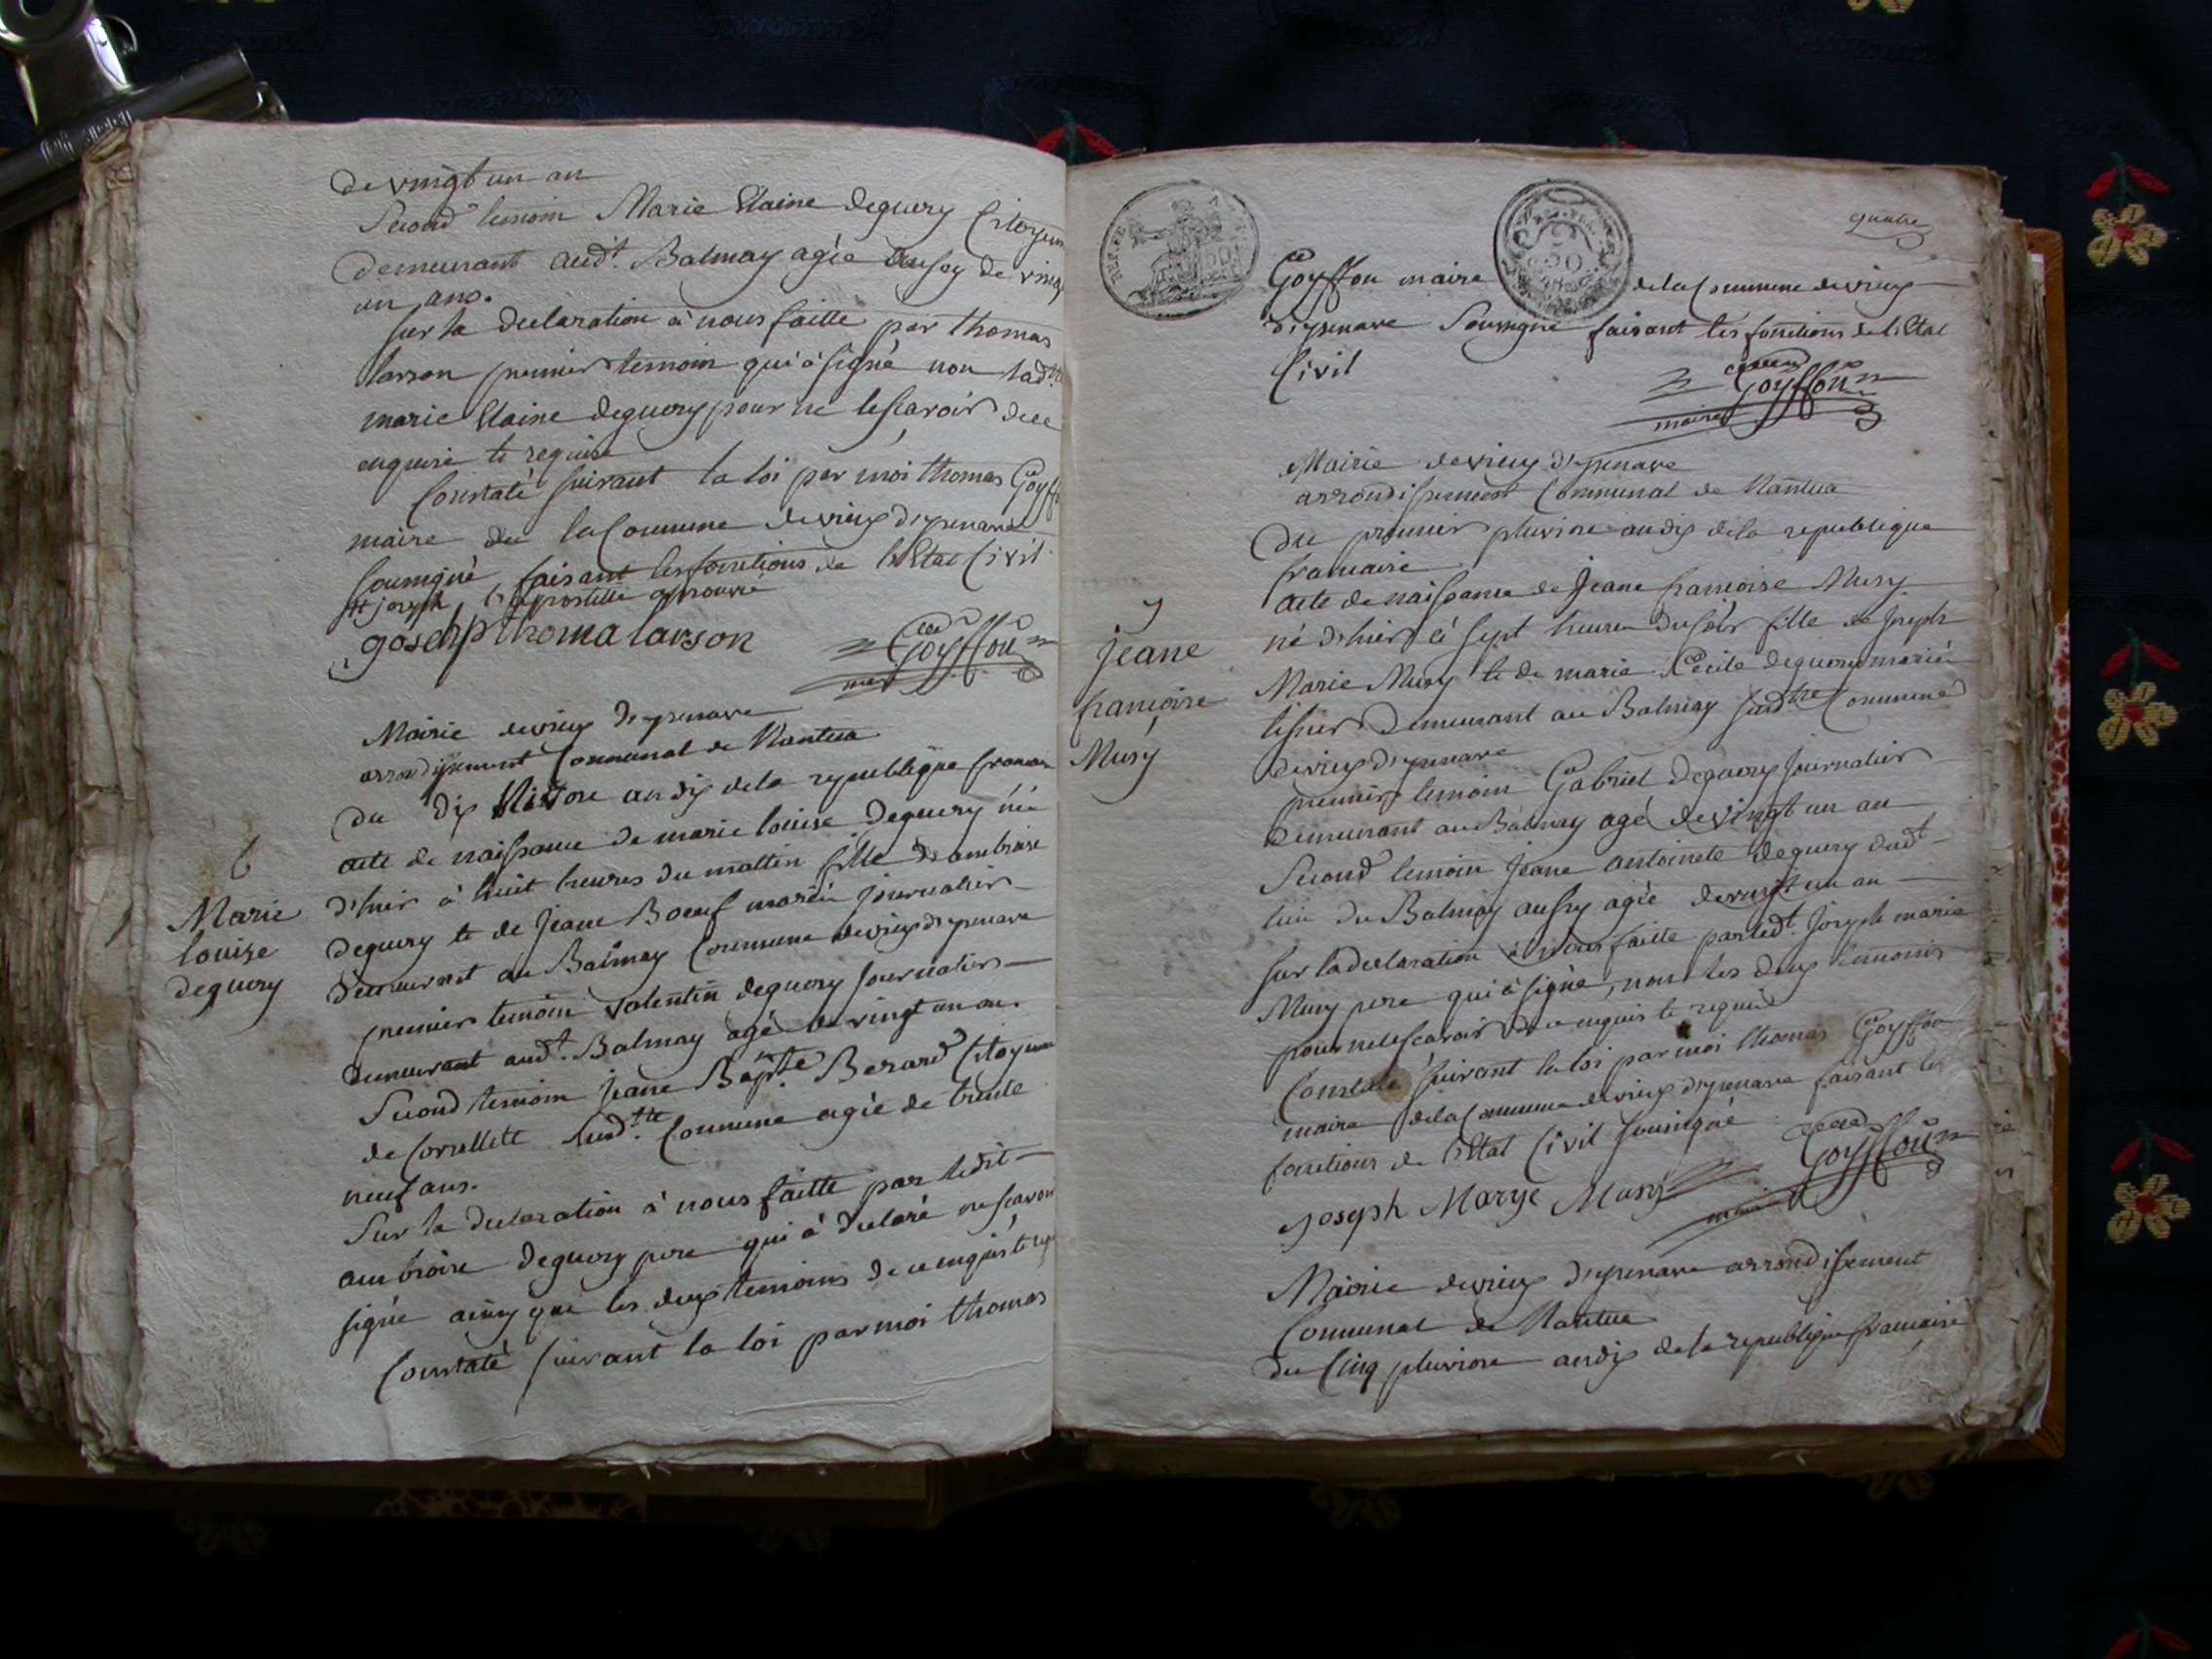 de vingt un an
Second temoin Marie Elaine deguery Citoyen
demeurant audt. Balmay agée aussy de ving
un ans.
sur la declaration à nous faitte par thomas
larson premier temoin qui à signé non lad
marie Elaine deguery pour ne le scavoir de ce
enquise et requise
Constaté suivant la loi par moi thomas Goyff
maire de la Commune de vieux d'ysenave
soussigné, faisant les fonctions de l'Etat Civil.
# joseph l'apostille aprouvé
josehp thoma larson
Goyffon
Mairie de vieux d'ysenave
arrondissement Communal de Nantua
du dix Nivose an dix de la republique francai
6
Marie
louise
deguery
acte de naissance de marie louise deguery née
d'hier à huit heures du mattin fille d'ambroise
deguery et de Jeane Boeuf mariés journalier
demeurant au Balmay Commune de vieux d'ysenave
premier temoin valentin deguery journalier
demeurant audt. Balmay agé de vingt un an.
Second temoin Jeane Bapte Berard Citoyenne
de Corcellete sudtte Commune agée de trente
neuf ans.
Sur la declaration à nous faitte par ledit
ambroise deguery pere qui à declaré ne scavoir
signé ainsy que les deux temoins de ce enquis et
Constaté suivant la loi par moi thomas
quatre
50
Goyffon maire de la Commune de vieux
d'ysenave Soussigné faisant les fonctions de l'Etat
Civil
Goyffon
maire
Mairie de vieux d'ysenave
arrondissement Communal de Nantua
Du premier pluviose an dix de la republique
francaise
7
Jeane
francoise
Musy
acte de naissance de Jeane francoise Musy
né d'hier à sept heures du soir fille de Joseph
Marie Musy et de marie Cécile deguery mariés
tisier demeurant au Balmay sudtte Commune
de vieux d'ysenave
premier temoin Gabriel deguery Journalier
demeurant au Balmay agé de vingt un an
Second temoin Jeane antoinete deguery dudt
lieu du Balmay aussy agée de vingt un an
sur la declaration à nous faitte par ledt. Joseph marie
Musy pere qui à signé, non les deux temoins
pour ne le scavoir de ce enquis et requis
Constaté suivant la loi par moi thomas Goyffon
maire de la Commune de vieux d'ysenave faisant les
fonctions de l'Etat Civil soussigné
Goyffon
Joseph Marye Musy
Mairie de vieux d'ysenave arrondissement
Communal de Nantua
du Cinq pluviose an dix de la republique francaise